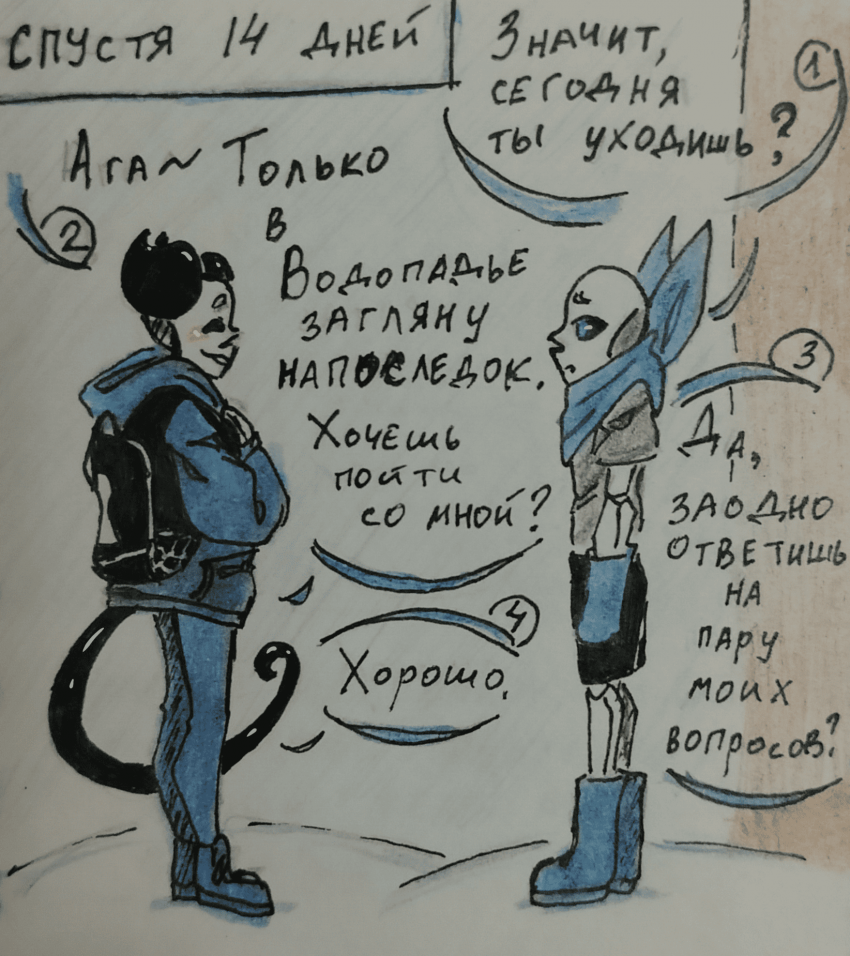 СПУСТЯ 14 ДНЕЙ
ЗНАЧИТ,
СЕГОДНЯ
ТЫ УХОДИШЬ?
1
2
АГА~ ТОЛЬКО
В
ВОДОПАДЬЕ
ЗАГЛЯНУ
НАПОСЛЕДОК.
ХОЧЕШЬ
ПОЙТИ
СО МНОЙ?
3
ДА,
ЗАОДНО
ОТВЕТИШЬ
НА
ПАРУ
МОИХ
ВОПРОСОВ?
4
Хорошо.